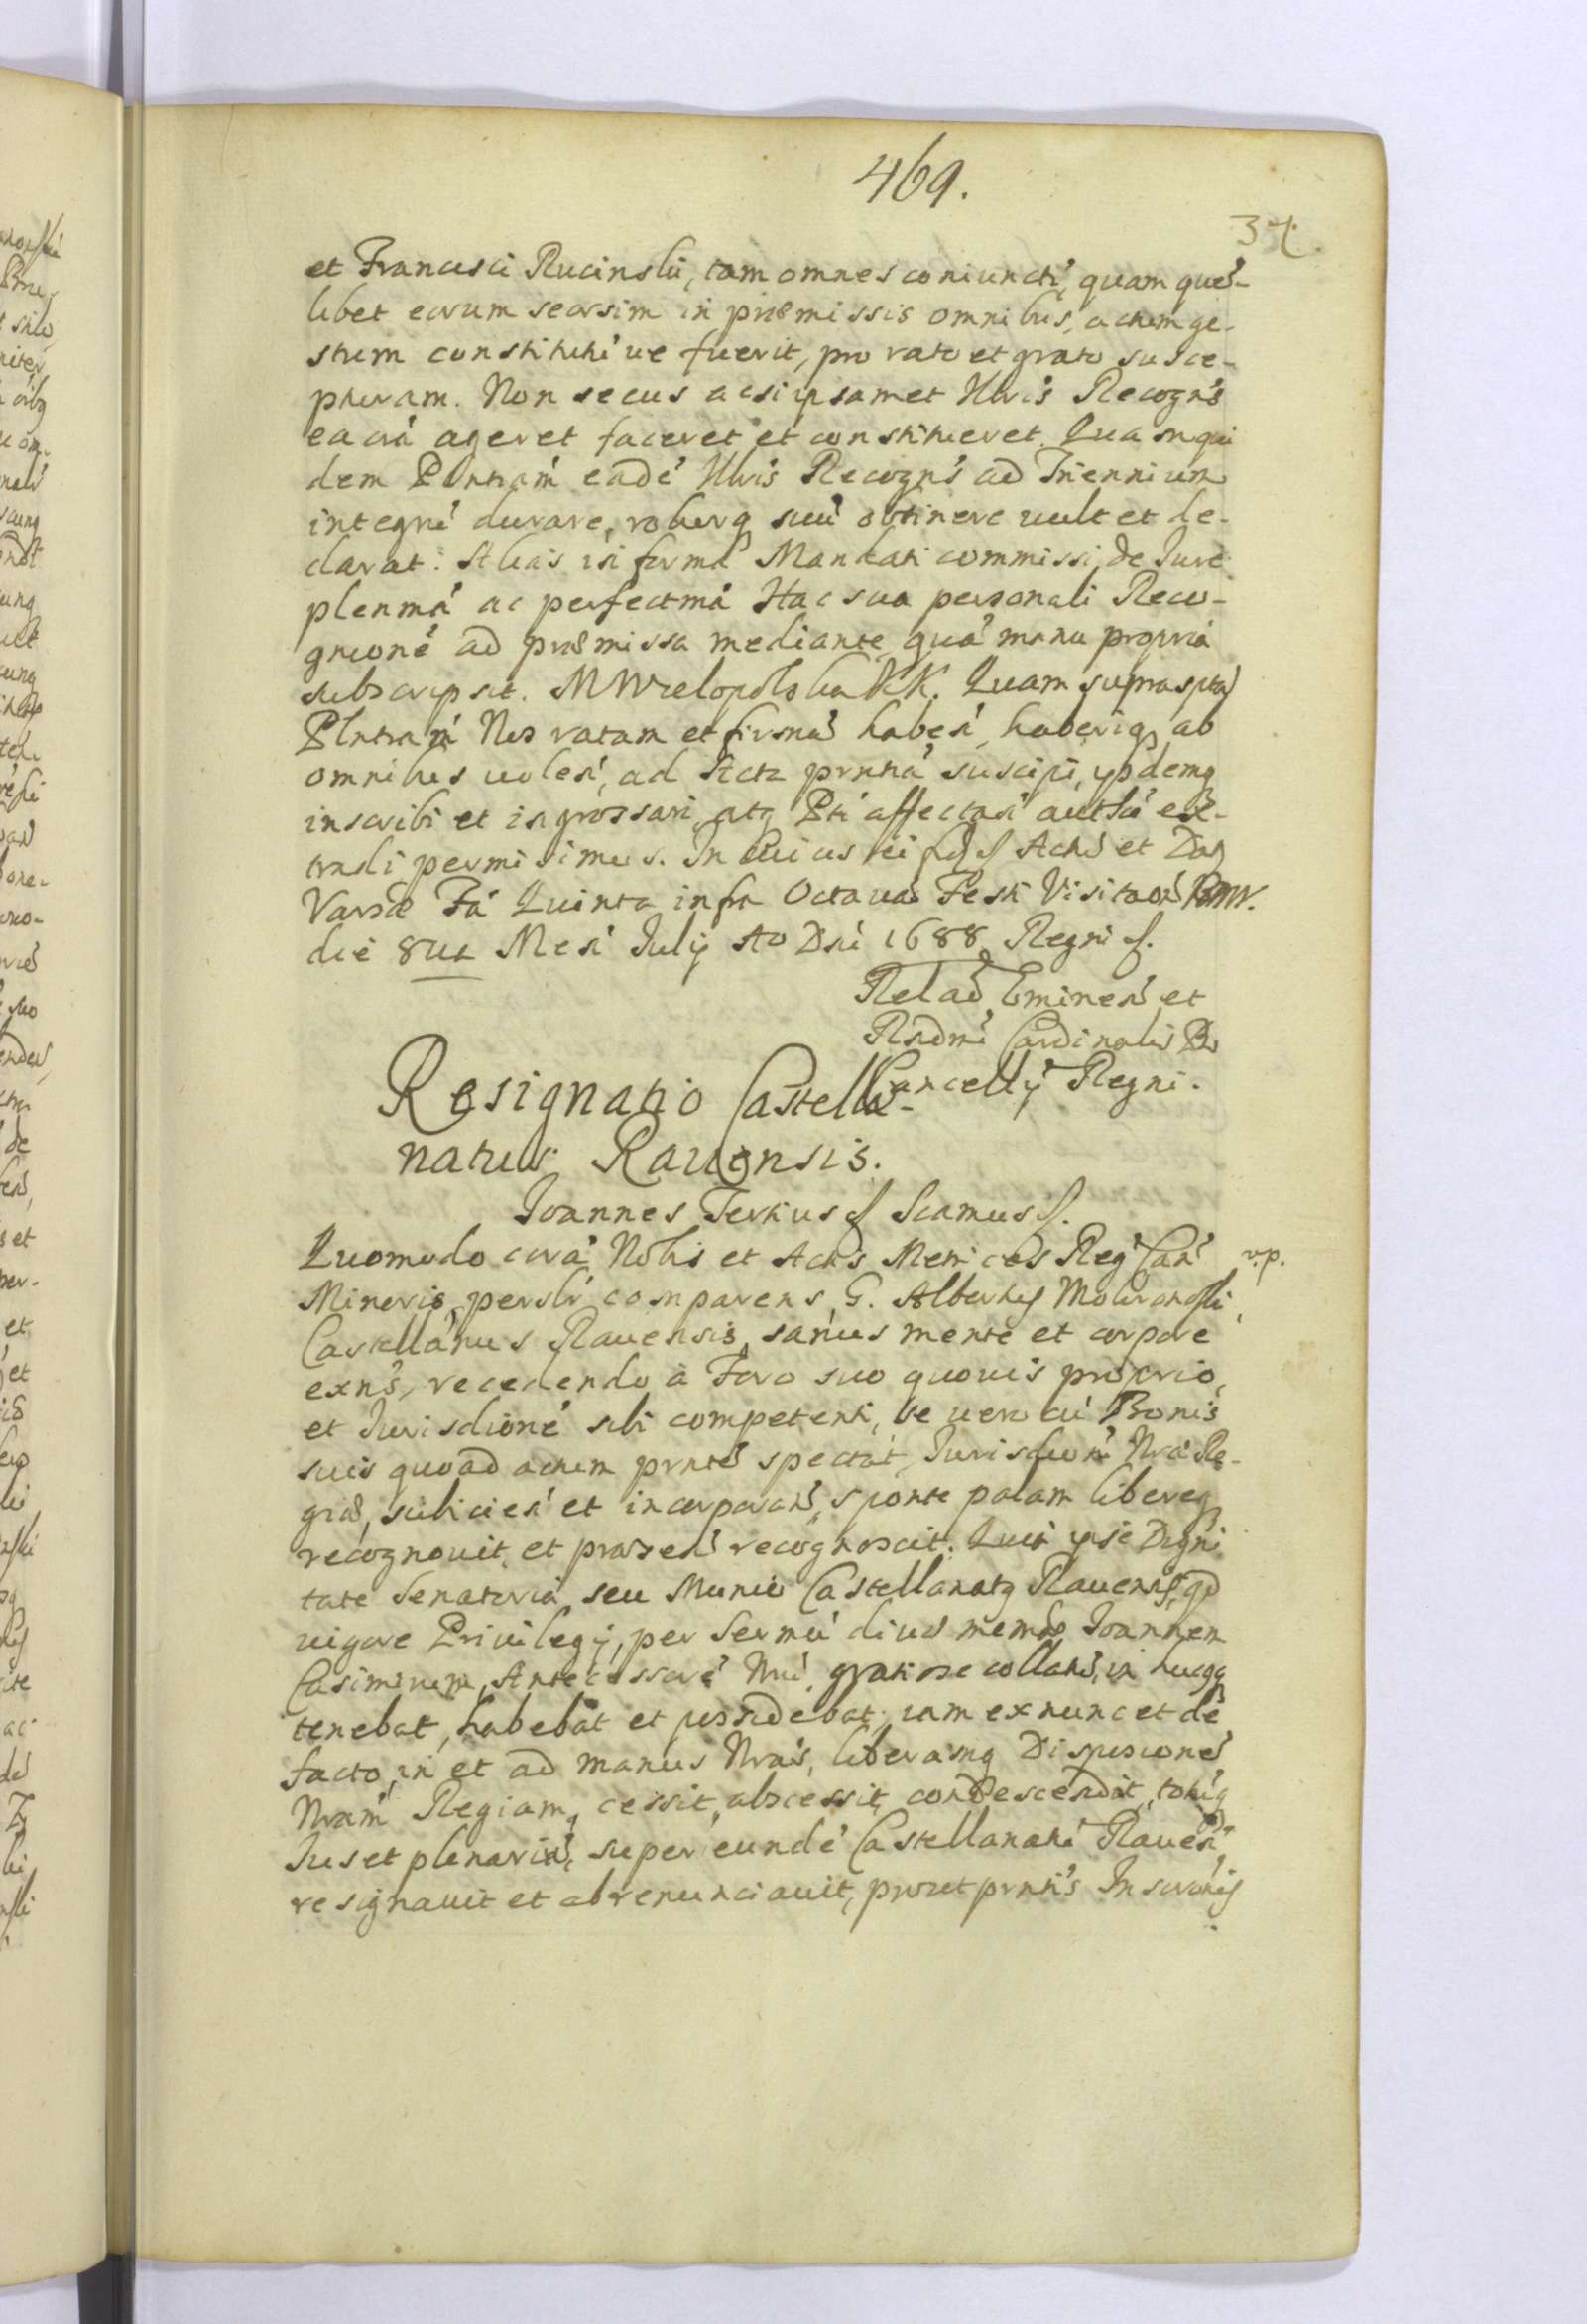 469.
37.
et Francisci Rucinskii, tam omnes coniunctĩ, quam quẽ-
libet eorum seorsim in præmissis omnibus, actum ge-
stum constitutũ ue fuerit, pro rato et grato susce-
pturam. Non secus acsi ipsamet Illris Recogñs
eacrà ageret faceret et constitueret. Quam qui
dem Plntiam eadẽ Illris Recogñs ad Triennium
integrũ durare, roburq suũ obtinere uult et de-
clarat: Alias in forma Mandati commissi, de Iure
plenmà ac perfectmà Hac sua personali Reco-
gnionẽ ad præmissa mediante, quã manu propria
subscripsit. MWielopolska KK. Quam suprasptã
Plntiam Nos ratam et firmã habeñ, haberiq ab
omnibus uoleñ, ad Acta prntia suscipi, ysdemq
inscribi et ingrossari, atq Pti affectañ authẽ ex-
tradi permisimus. In Cuius rei fid Actũ et Dat
Varsæ Fa Quinta infra Octauã Festi Visitaõis BMV.
die 8ua Mesñ Iulij Ao Dñi 1688 Regni
Relaõ Emineñ et
Rndmi Cardinalis Pro
Cancellij Regni.
Resignatio Castella-
natus Rauensis.
Ioannes Tertius Scamus
Quomodo corà Nobis et Actis Metrices Reg Cañ v.p.
Minoris perslr comparens G. Albertus Mokronoski,
Castellanus Rauensis, sanus mente et corpore
exñs, recedendo à Foro suo quouis proprio,
et Iurisdionẽ sibi competenti, se uero cũ Bonis
suis quoad actum prntẽ spectat, Iurisdioni Nræ Re-
giæ, subiicieñ et incorporañ, sponte palam libereq
recognouit, et præseñ recognoscit. Quia ipse Digni
tate Senatoria, seu Munere Castellanatq Rauensis, qd
uigore Priuilegij, per Sermũ diuæ memõe Ioannem
Casimirum, Antecessorẽ Nrũ, gratiose collatũ, in hucqq
tenebat, habebat et possidebat; iam exnunc et de
facto, in et ad manus Nras, liberamq Disposionẽ
Nram Regiam, cessit, abscessit, condescendit, totũq
Ius et plenariũ, super eundẽ Castellanatũ Raueñ,
resignauit et abrenunciauit, prout prntis Inscronis